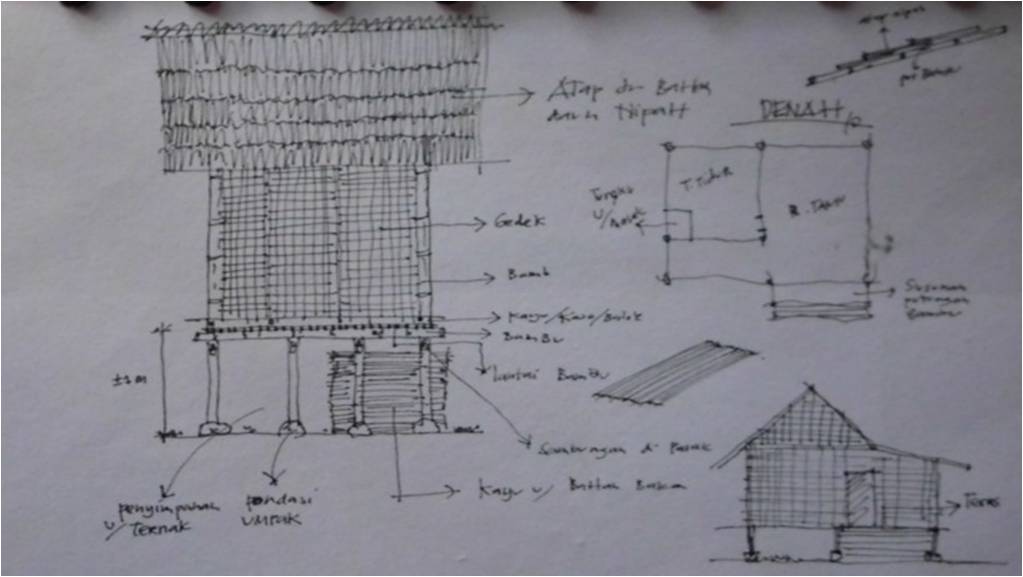 Atap dr Bambu
daun Nipah
DENAH
T. Tidur
R. Tamu
Tungku
u/Masak
Gedek
Bambu
Kayu/Kaso/Balok
BamBu
Lantai Bambu
Susunan
potongan
Bambu
Sambungan di Pasak
Kayu u/ Bahan Bakar
penyimpanan
u/Ternak
pondasi
UMPAK
Teras